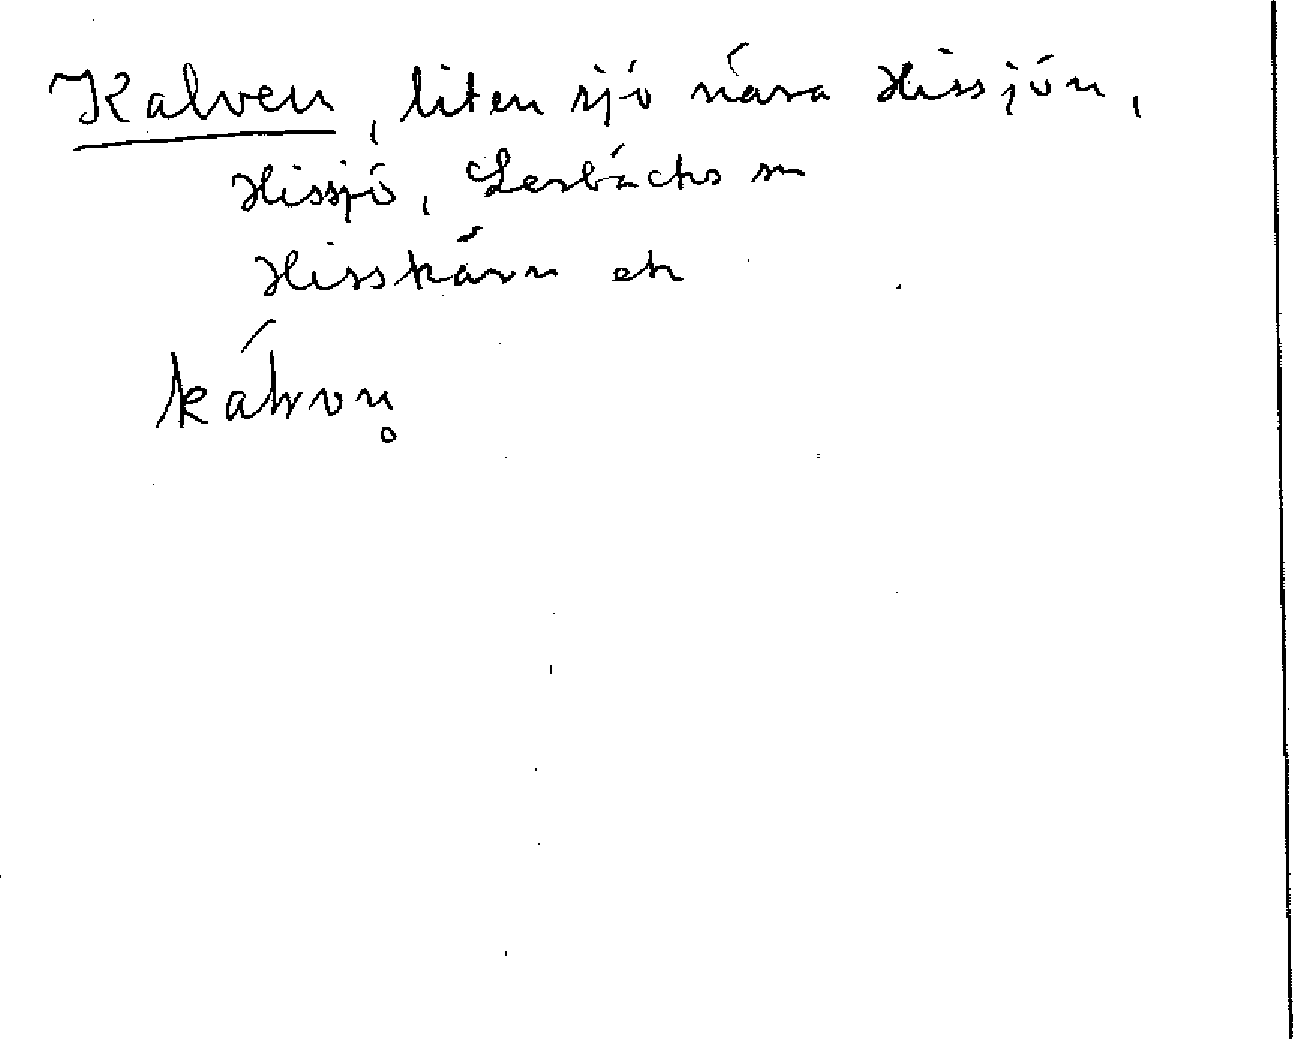 Kalven, liten sjö nära Hissjön,
Hissjö, Lerbäcks sn
Hisskärn ek